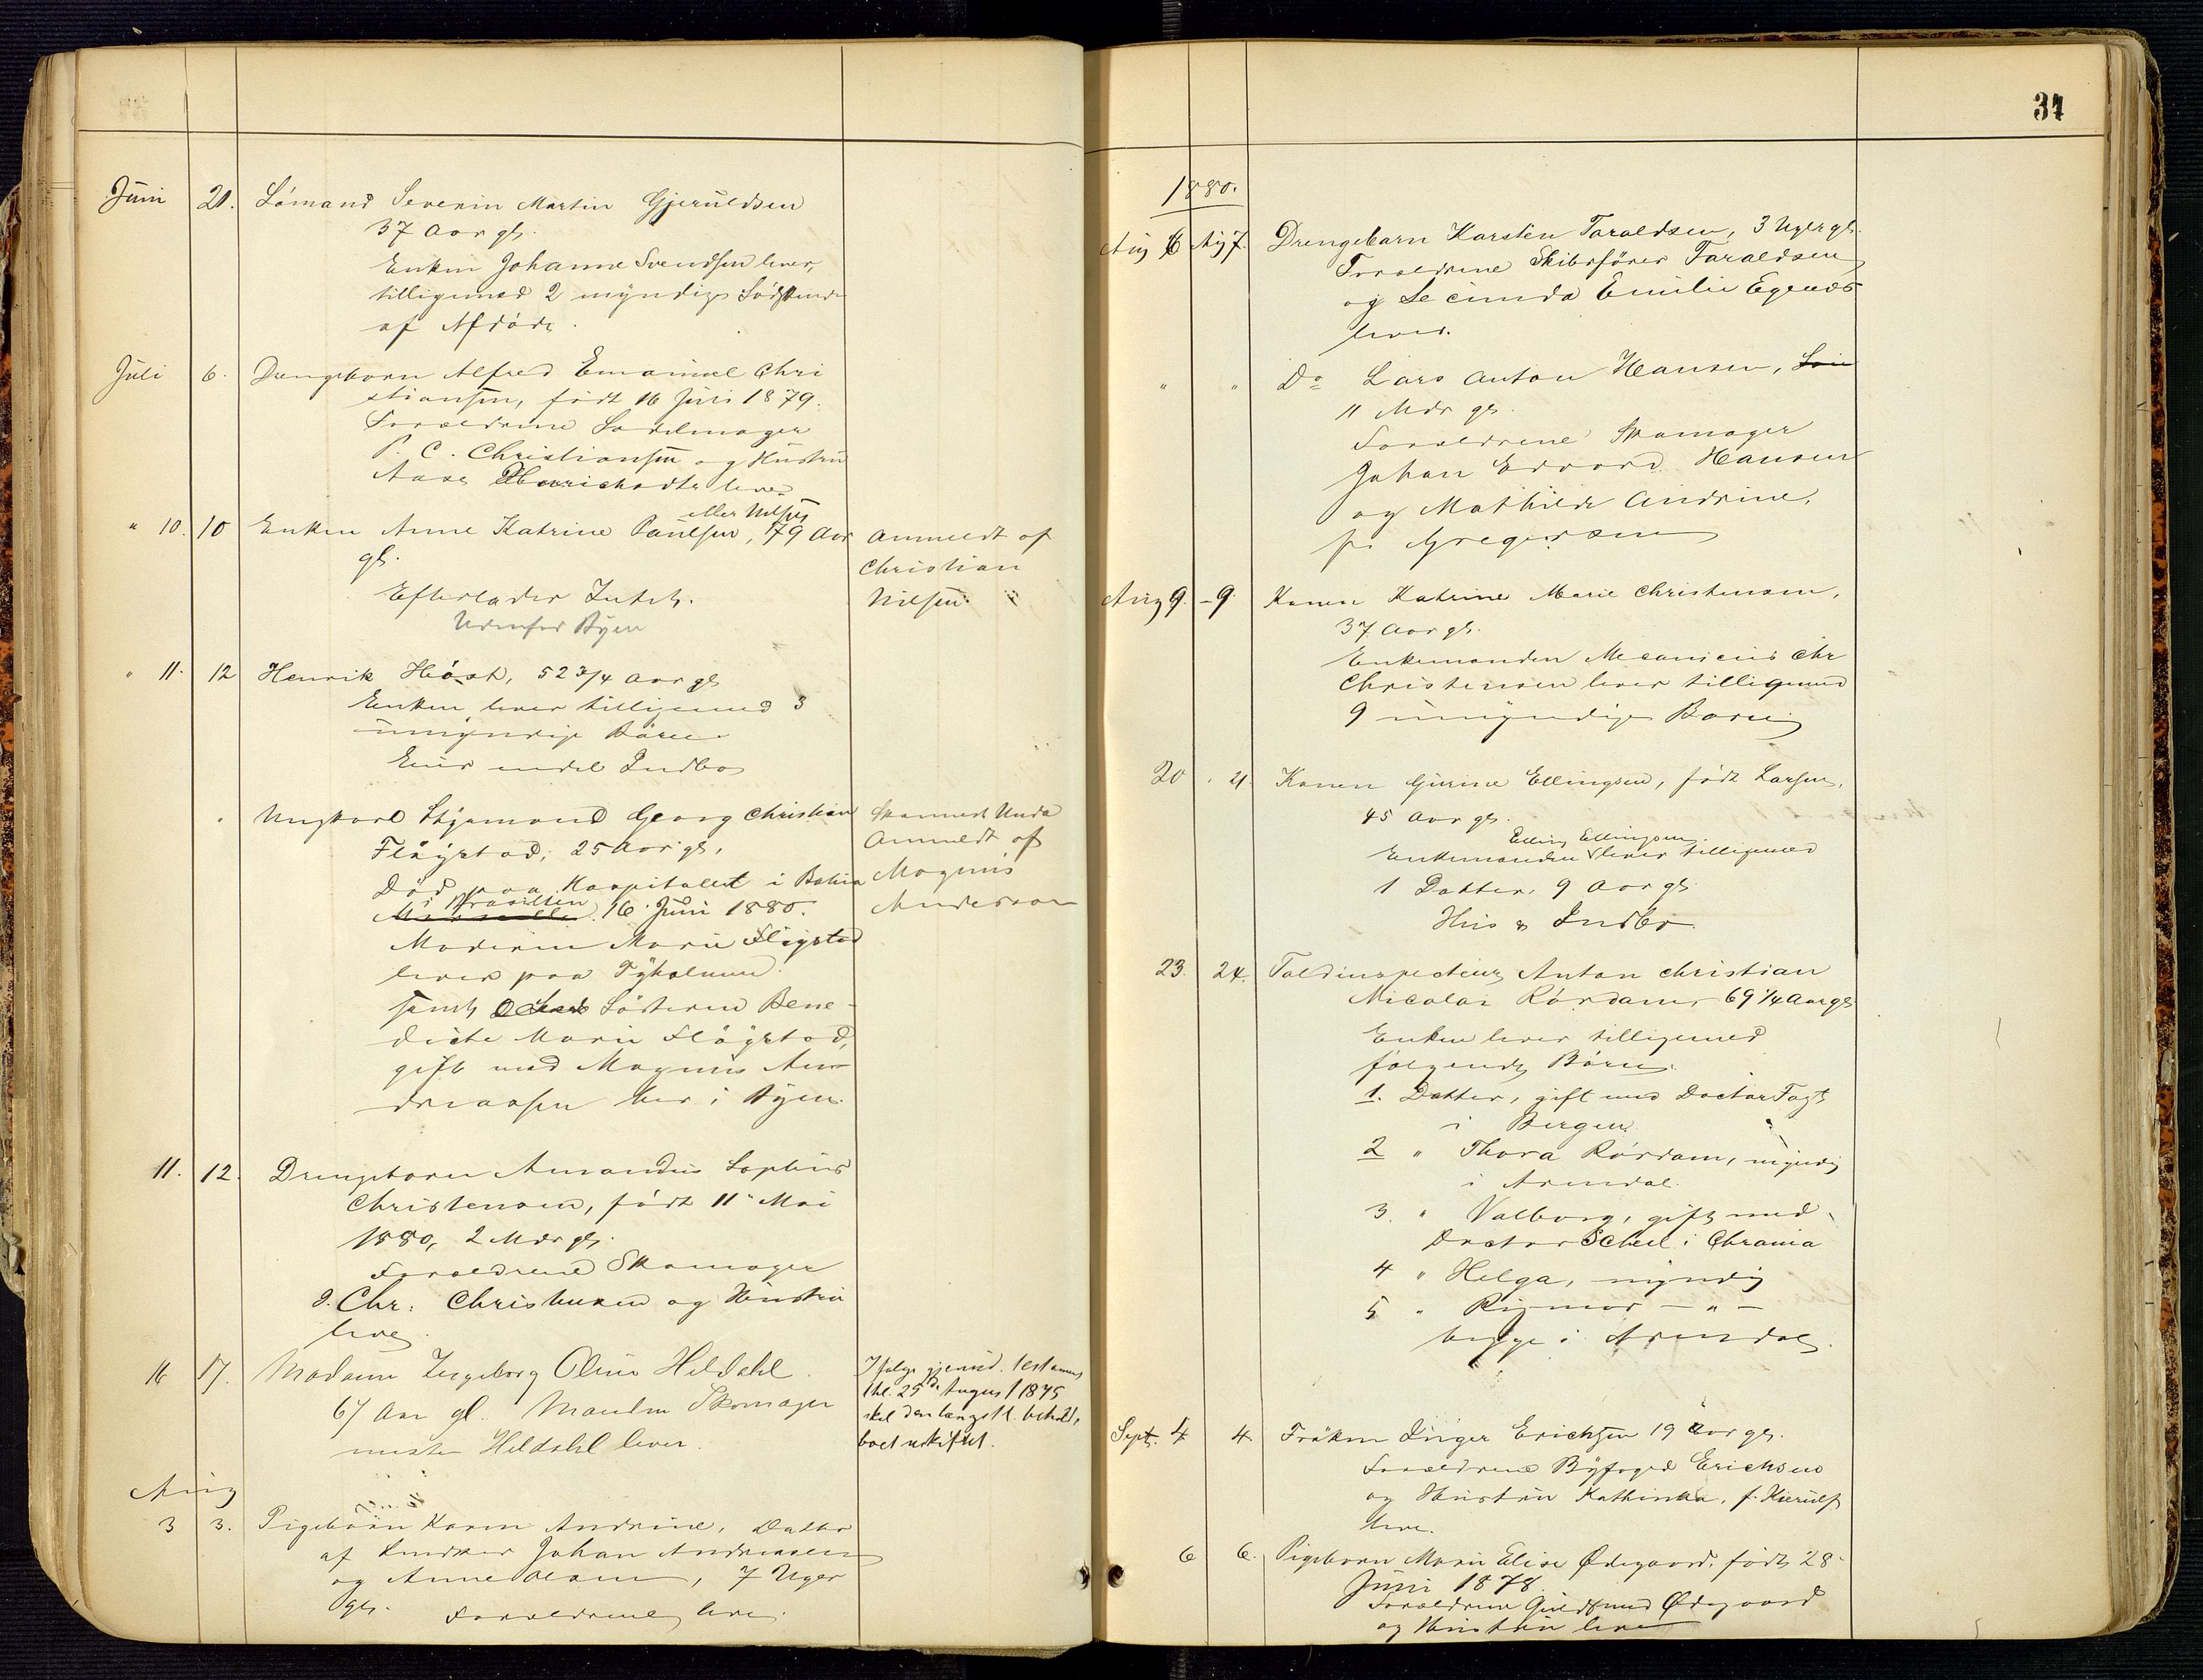 Juni 21. Sömand Severin Martin Gjeruldsen
37 Aar gl.
Enken Johanne Svendsen lever,
tilligemed 2 myndige Sødskende
af Afdöde.
Juli 6. Drengebarn Alfred Emanuel Chri
stiansen, födt 16 Juli 1879.
Forældrene Sadelmager
P. C. Christiansen og Hustru
Aase lever
eller Nilsen
" 10. 10 Enken Anne Katrine Paulsen, 79 Aar
gl.
Efterlader Intet.
Udenfor Byen
Anmeldt af
Christian
Nilsen
" 11. 12 Henrik Höst, 52 3/4 Aar gl
Enken lever tilligemed 3
umyndige Börn.
Huus indel Indbo
" Ungkarl Styrmand Georg Christian
Flöystad, 25 Aar gl.
Död paa Hospitalet i Bahia
i Brasilien
16 Juni 1880.
Moderen Marie Flöystad
lever paa Tyholmen
samt Søsteren Bene-
dicte Marie Flöystad,
gift med Magnus An
dreassen her i Byen.
Skonnert Unda
Anmeldt af
Magnus
Andersson
11. 12. Drengebarn Amandus Sophus
Christensen, födt 11 Mai
1880, 2 Mdr gl.
Forældrene Skomager
J. Chr. Christensen og Hustru
lever
16 17. Madame Ingeborg Oline Heldahl
67 Aar gl. Manden Skomager
mester Heldahl lever.
Ifølge gjensid. testament
thl. 25de August 1875
skal den længstl. beholde
boet uskiftet.
Aug
3 3. Pigebarn Karen Andrine, Datter
af Snedker Johan Andreasen
og Anne Olsen, 7 Uger
gl. Forældrene lever.
34
1880.
Aug 6 Aug 7. Drengebarn Karsten Taraldsen, 3 Uger gl.
Forældrene Skibsförer Taraldsen
og Secunda Emilie Egenæs
lever.
" " Do Lars Anton Hansen, Sön
11 Mdr gl.
Forældrene Skomager
Johan Edvard Hansen
og Mathilde Andrine,
f. Gregersen
Aug 9. - 9. Konen Katrine Marie Christensen,
37 Aar gl.
Enkemanden Mecanicus Chr
Christensen lever tilligemed
9 umyndige Børn
20 " 21. Konen Gurine Ellingsen, födt Larsen,
45 Aar gl.
Elling Ellingsen
Enkemanden lever tilligemed
1 Datter, 9 Aar gl
Hus & Indbo
23. 24. Toldinspecteur Anton Christian
Nicolai Rördam, 69 1/4 Aar gl
Enken lever tilligemed
følgende Børn:
1. Datter, gift med Doctor Fagt
i Bergen
2 " Thora Rördam, myndig
i Arendal
3. " Valborg, gift med
Doctor Scheel i Chrania
4 " Helga, myndig
5 " Rigmor - " -
begge i Arendal.
Sept. 4 4. Fröken Inger Erichsen 19 Aar gl.
Forældrene Byfoged Erichsen
og Hustru Kathinka, f. Kierulf
lever.
6 6. Pigebarn Marie Elise Ødegaard, födt 28
Juni 1878
Forældrene Guldsmed Ødegaard
og Hustru lever